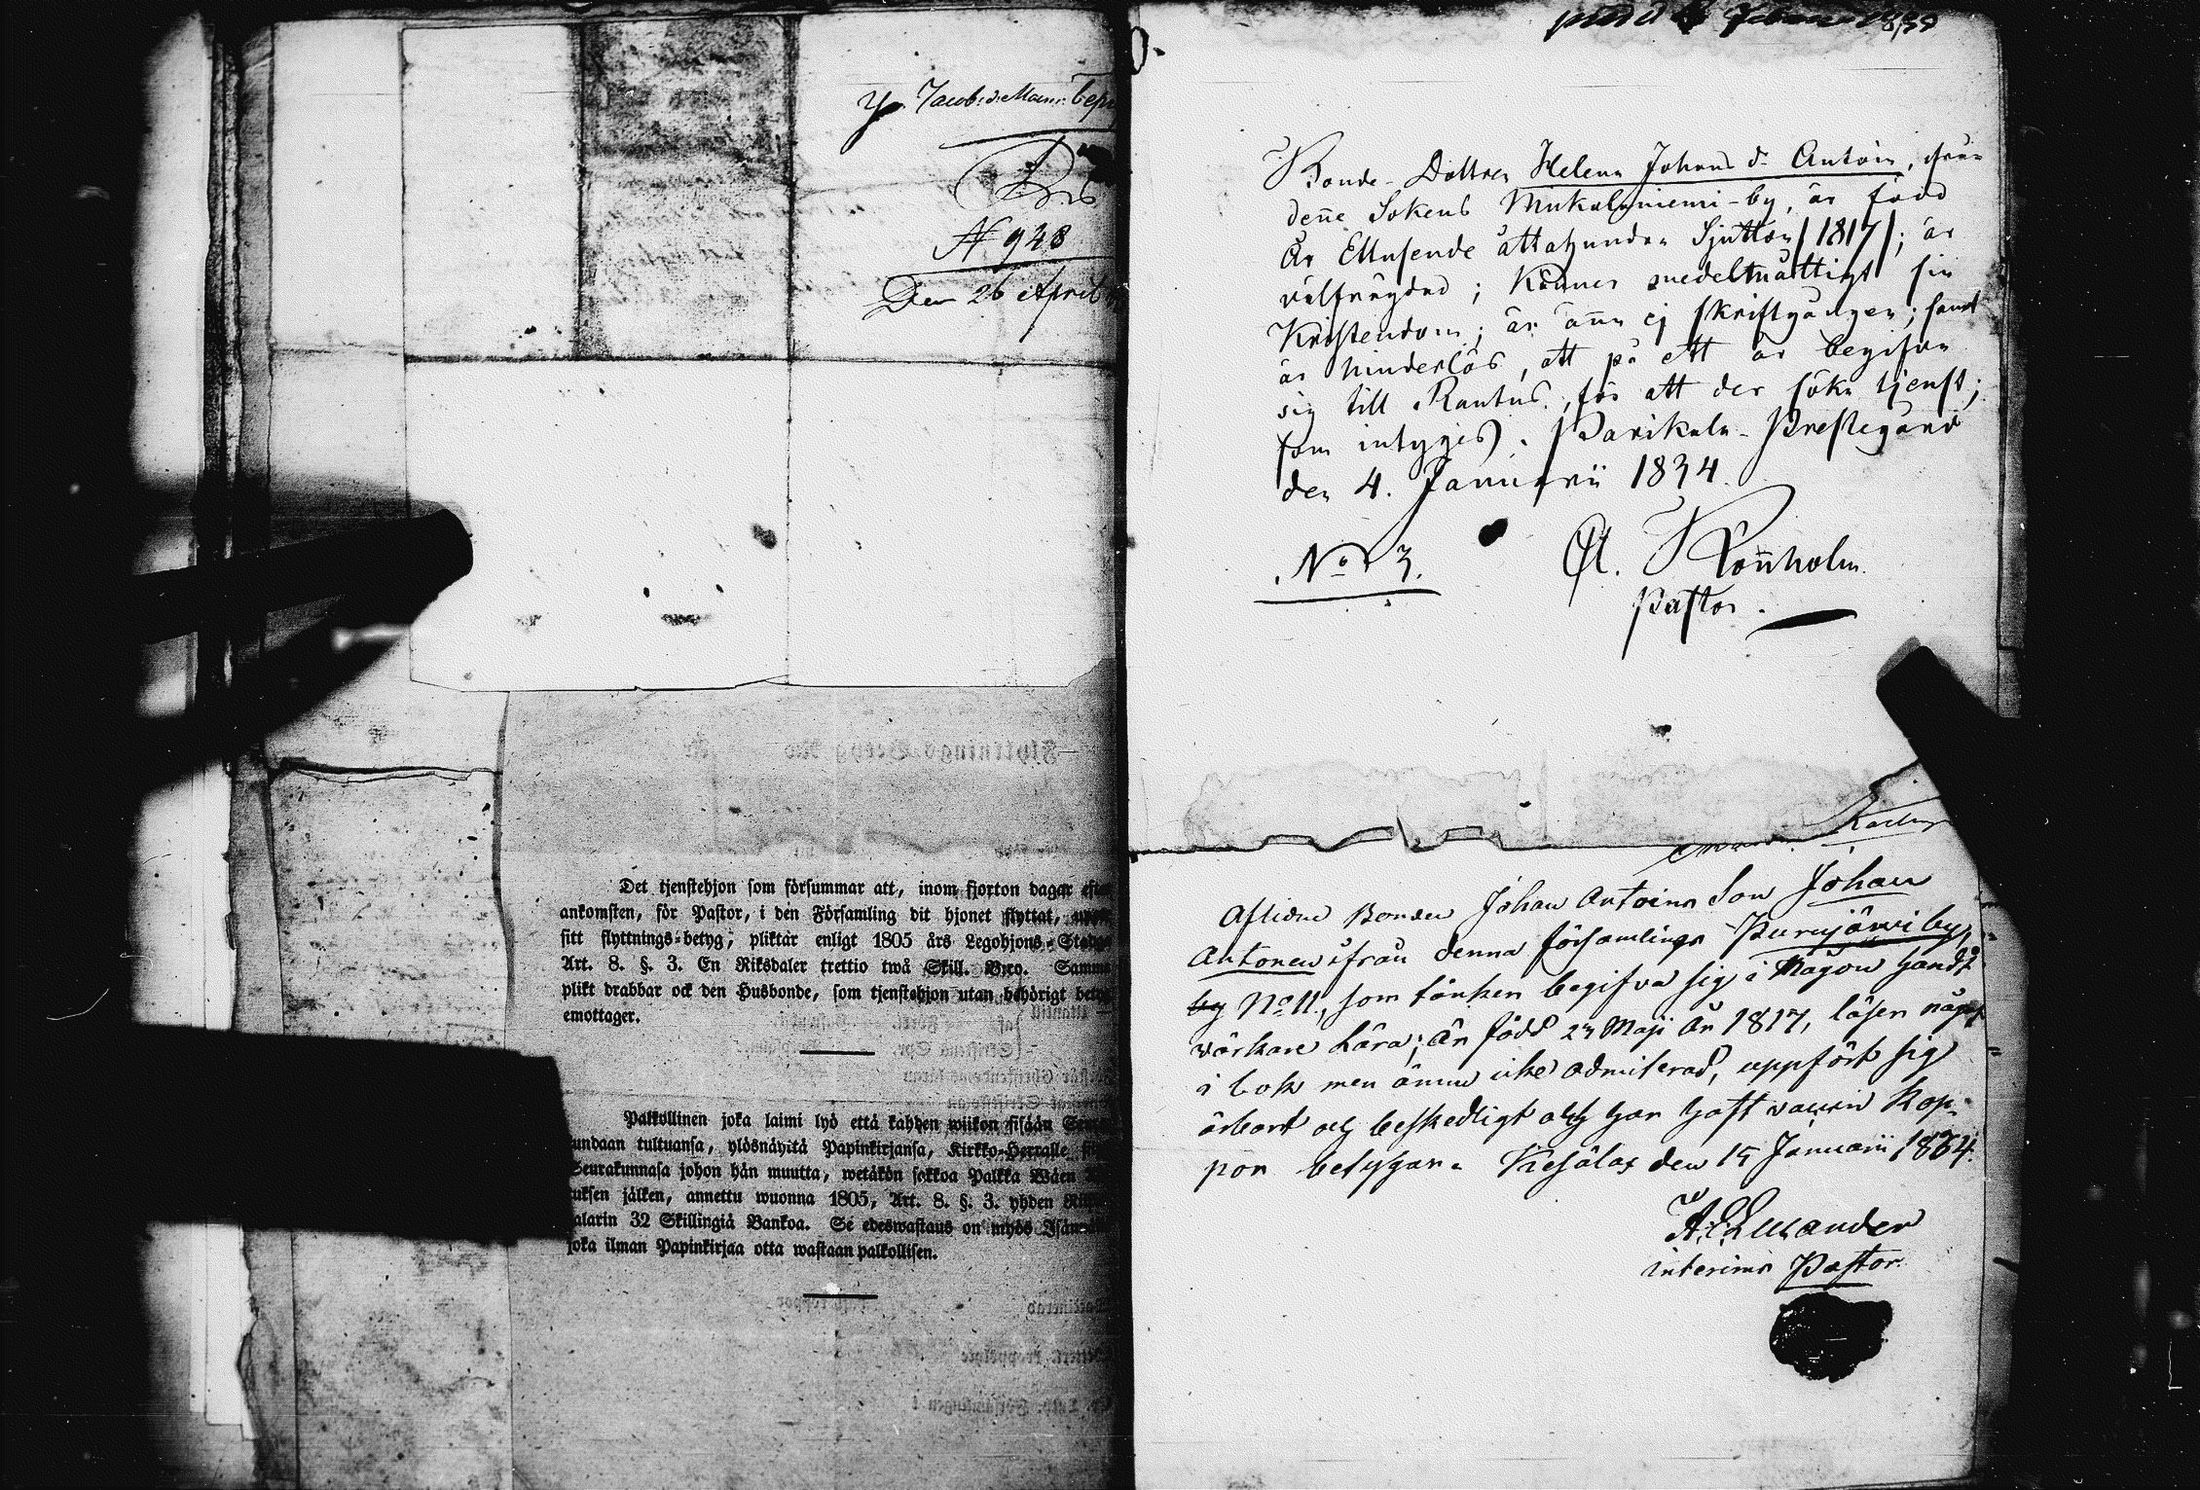 Jacobs d. Maria
N 948
Den 26 April
Det tjenstehjon som försummar att, inom fjorton dagar
ankomsten, för Pastor, i den Församling dit hjonet flyttat,
sitt flyttnings-betyg, pliktar enligt 1805 års Legohjons-
Art. 8. §. 3. En Riksdaler trettio twå Skill. B:co. Samma
plikt drabbar ock den Husbonde, som tjenstehjon utan behörigt
emottager.
Palkollinen joka laimi lyö että kahden wiikon sisään
tultuansa, ylösnäyttä Papinkirjansa, Kirkko-Herralle
Seurakunnasa johon hän muutta, wetäkön sakkoa Palkka Wäen
jälken, annettu wuonna 1805, Art. 8. §. 3. yhden
32 Skillingiä Bankoa. Se edeswastaus on myös
joka ilman Papinkirjaa otta wastaan palkollisen.
Bonde-Dottren Helena Johans d:r Antoin, ifrån
denne Sokens Mukulaniemi-by, är född
År Ettusende åttahundra Sjutton /1817/; är
välfrägdad; Känner medelmåttigt sin
Kristendom; är änn ej skriftgången; samt
är hinderlös, att på ett år begifva
sig till Rantus, för att der söka tjenst;
som intygjes). Parikala-Prestegård
den 4. Januarii 1834.
No 3.
Rönnholm
Pastor.
Aflidne Bonden Johan Antoins Son Johan
Antonen ifrån denna församlings Purujärwi by,
by No 11, som tänker begifva sig i någon handt
wärkare Lära; är född 27 Maji År 1817, läser
i bok men ännu icke admiterad, uppfört sig
ärbart och beskedligt och han haft vaccin Kop-
por betygar. Kesälax den 15 Januarii 1834.
interims Pastor.